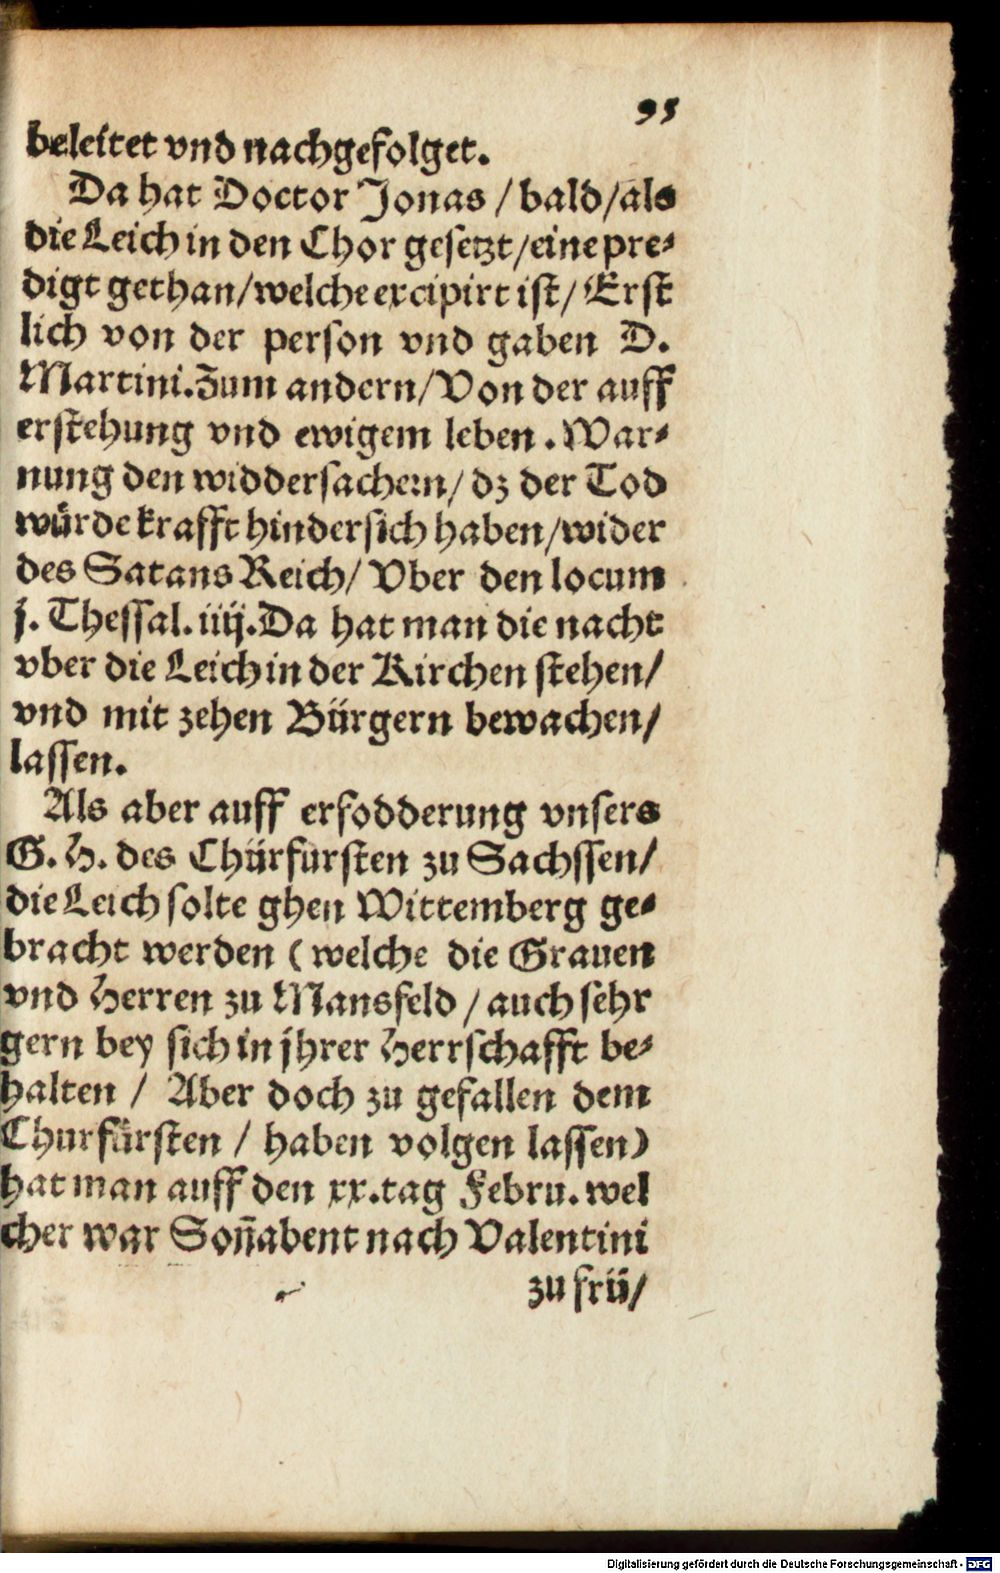 95
beleitet vnd nachgefolget.
Da hat Doctor Jonas / bald/als
die Leich in den Chor gesetzt/eine pre-
digt gethan/welche excipirt ist/ Erst
lich von der person vnd gaben D.
Martini. Zum andern/Von der auff
erstehung vnd ewigem leben. War-
nung den widdersachern/ dz der Tod
würde krafft hindersich haben/wider
des Satans Reich/ Vber den locum
j. Thessal. iiij. Da hat man die nacht
vber die Leich in der Kirchen stehen/
vnd mit zehen Bürgern bewachen/
lassen.
Als aber auff erfodderung vnsers
G. H. des Chürfursten zu Sachssen/
die Leich solte ghen Wittemberg ge-
bracht werden (welche die Grauen
vnd Herren zu Mansfeld / auch sehr
gern bey sich in jhrer Herrschafft be-
halten / Aber doch zu gefallen dem
Churfürsten / haben volgen lassen)
hat man auff den xx. tag Febru. wel
cher war Soñabent nach Valentini
zu frü/
Digitalisierung gefördert durch die Deutsche Forschungsgemeinschaft - DFG